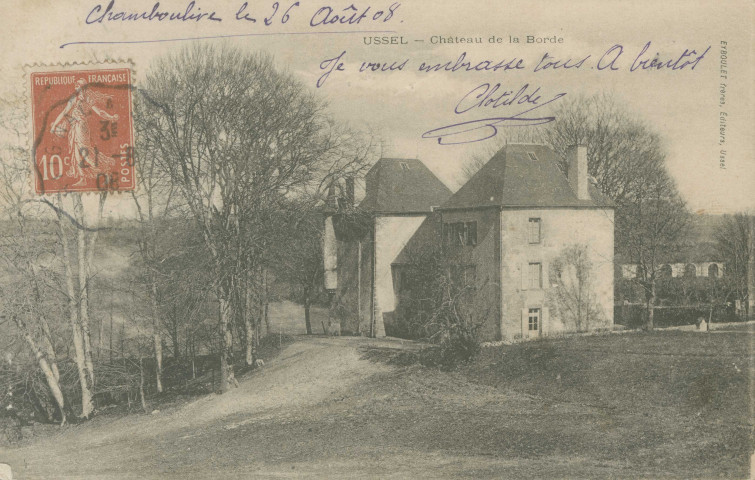 Chamboulive le 26 Août 08.
USSEL – Château de la Borde
Je vous embrasse tous. A bientôt
Clotilde
EYBOULET frères, Editeurs, Ussel
REPUBLIQUE FRANÇAISE
10c POSTES